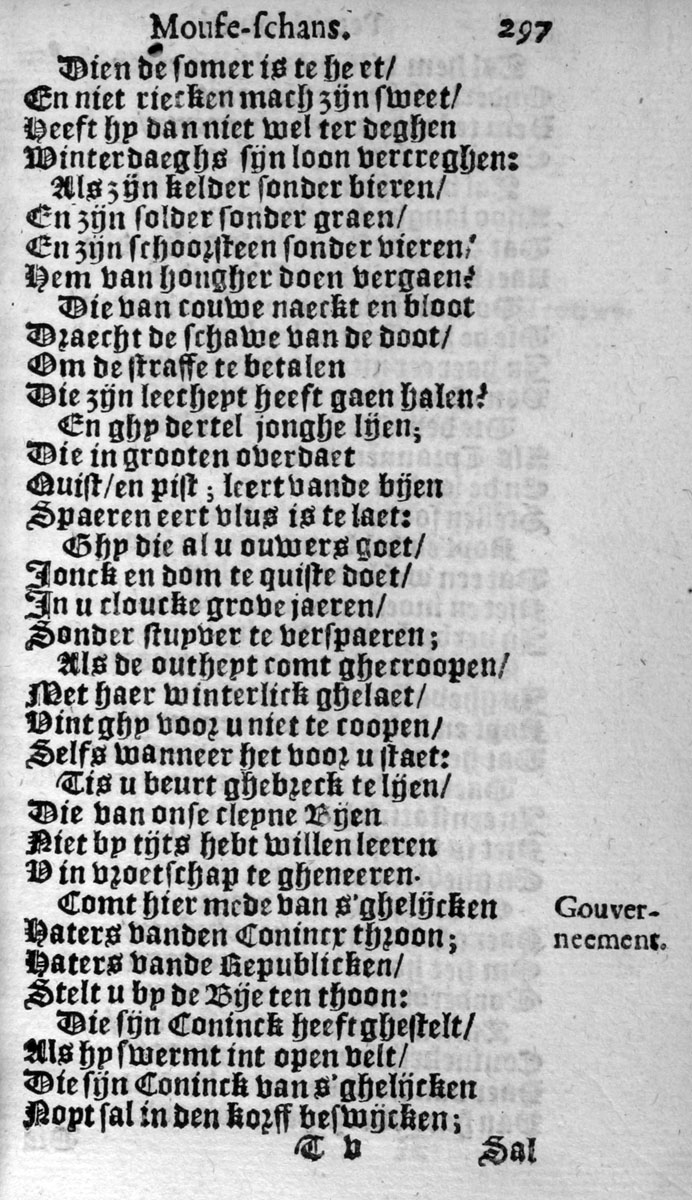 Mouse-schans. 297
Dien de somer is te heet/
En niet riecken mach zijn sweet/
Heeft hy dan niet wel ter deghen
Winterdaeghs sijn loon vercreghen:
Als zijn kelder sonder bieren/
En zijn solder sonder graen/
En zijn schoorsteen sonder vieren/
Hem van hongher doen vergaen?
Die van couwe naeckt en bloot
Draecht de schawe van de doot/
Om de straffe te betalen
Die zijn leetheyt heeft gaen halen?
En ghy dertel jonghe lijen;
Die in grooten overdaet
Quist/en pist; leert vande bijen
Spaeren eert vlus is te laet:
Ghy die al u ouwers goet/
Jonck en dom te quiste doet/
In u cloucke grove jaeren/
Sonder stuyver te verspaeren;
Als de outheyt comt ghecroopen/
Met haer winterlick ghelaet/
Vint ghy voor u niet te coopen/
Selfs wanneer het voor u staet:
Tis u beurt ghebreck te lijen/
Die van onse cleyne Bijen
Niet by tijts hebt willen leeren
V in vroetschap te gheneeren.
Comt hier mede van s'ghelijcken
Gouver-
Haters vanden Conincx throon;
neement.
Haters vande Republicken/
Stelt u by de Bije ten thoon:
Die sijn Coninck heeft ghestelt/
Als hy swermt int open velt/
Die sijn Coninck van s'ghelijcken
Noyt sal in den korff beswijcken;
T v Sal